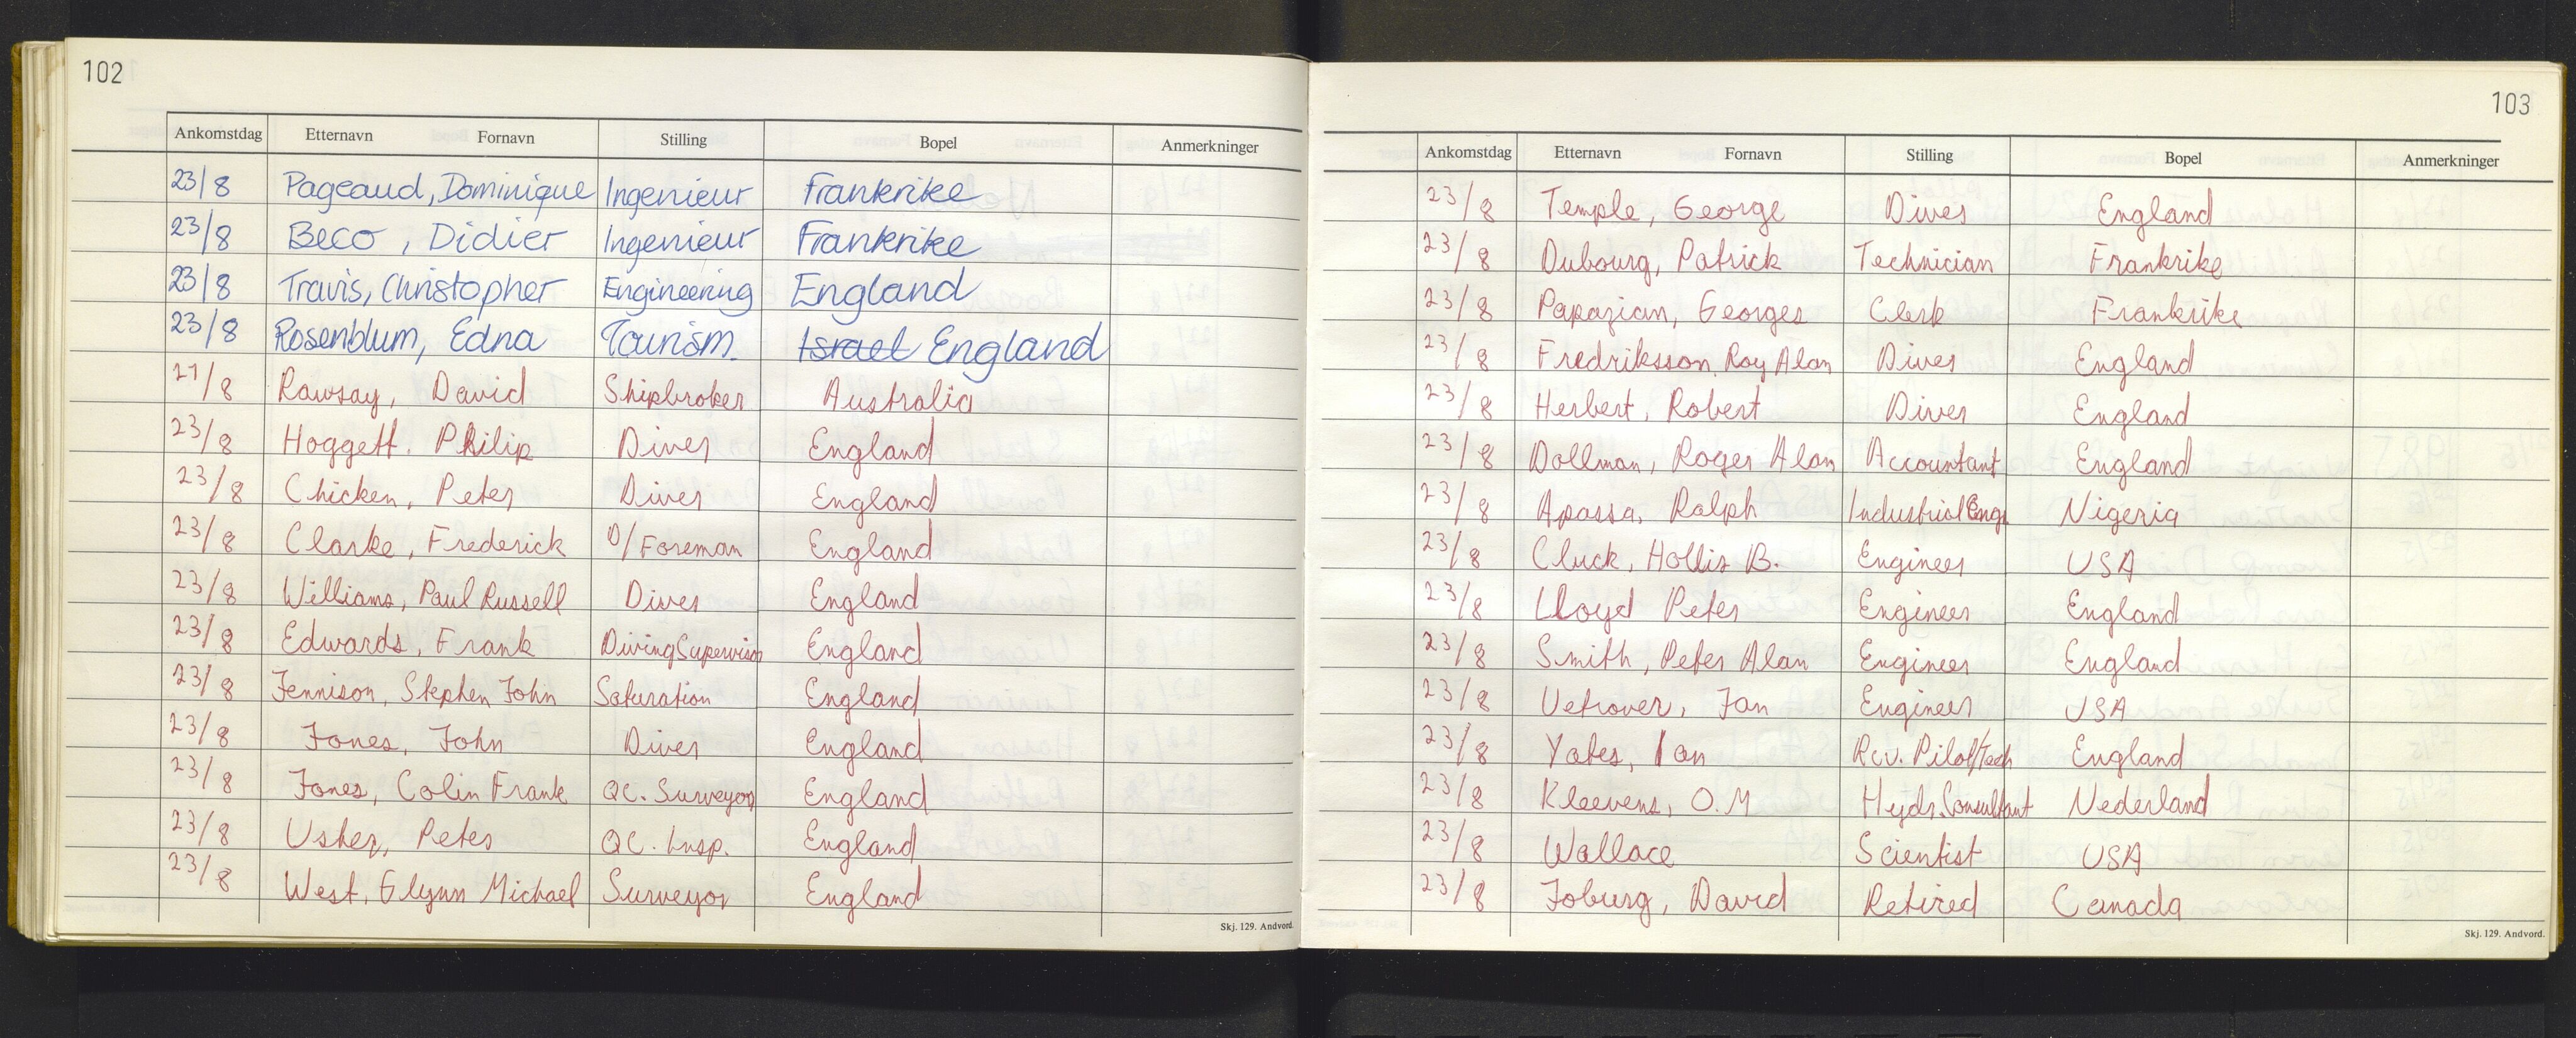 102
Ankomstdag Etternavn Fornavn Stilling Bopel Anmerkninger
23/8 Pageaud, Dominique Ingenieur Frankrike
23/8 Beco, Didier Ingenieur Frankrike
23/8 Travis, Christopher Engineering England
23/8 Rosenblum, Edna Tourism Israel England
21/8 Rawsay, David Shipbroker Australia
23/8 Hoggett. Philip Diver England
23/8 Chicken, Peter Diver England
23/8 Clarke, Frederick D/Foreman England
23/8 Williams, Paul Russell Diver England
23/8 Edwards, Frank Diving Supervisor England
23/8 Jennison, Stephen John Saturation England
23/8 Jones, John Diver England
23/8 Jones, Colin Frank QC. Surveyor England
23/8 Usher, Peter QC. Insp. England
23/8 West, Glynn Michael Surveyor England
Skj. 129. Andvord.
103
Ankomstdag Etternavn Fornavn Stilling Bopel Anmerkninger
23/8 Temple, George Diver England
23/8 Dubourg, Patrick Technician Frankrike
23/8 Papazian, Georges Clerk Frankrike
23/8 Fredriksson, Roy Alan Diver England
23/8 Herbert, Robert Diver England
23/8 Dollman, Roger Alan Accountant England
23/8 Apassa, Ralph Industrial Engr Nigeria
23/8 Cluck, Hollis B. Engineer USA
23/8 Lloyd Peter Engineer England
23/8 Smith, Peter Alan Engineer England
23/8 Vetrover, Jan Engineer USA
23/8 Yates, Ian Rcv. Pilot/Tech England
23/8 Kleevens, O.M Hydr. Consultant Nederland
23/8 Wallace Scientist USA
23/8 Joburg, David Retired Canada
Skj. 129. Andvord.